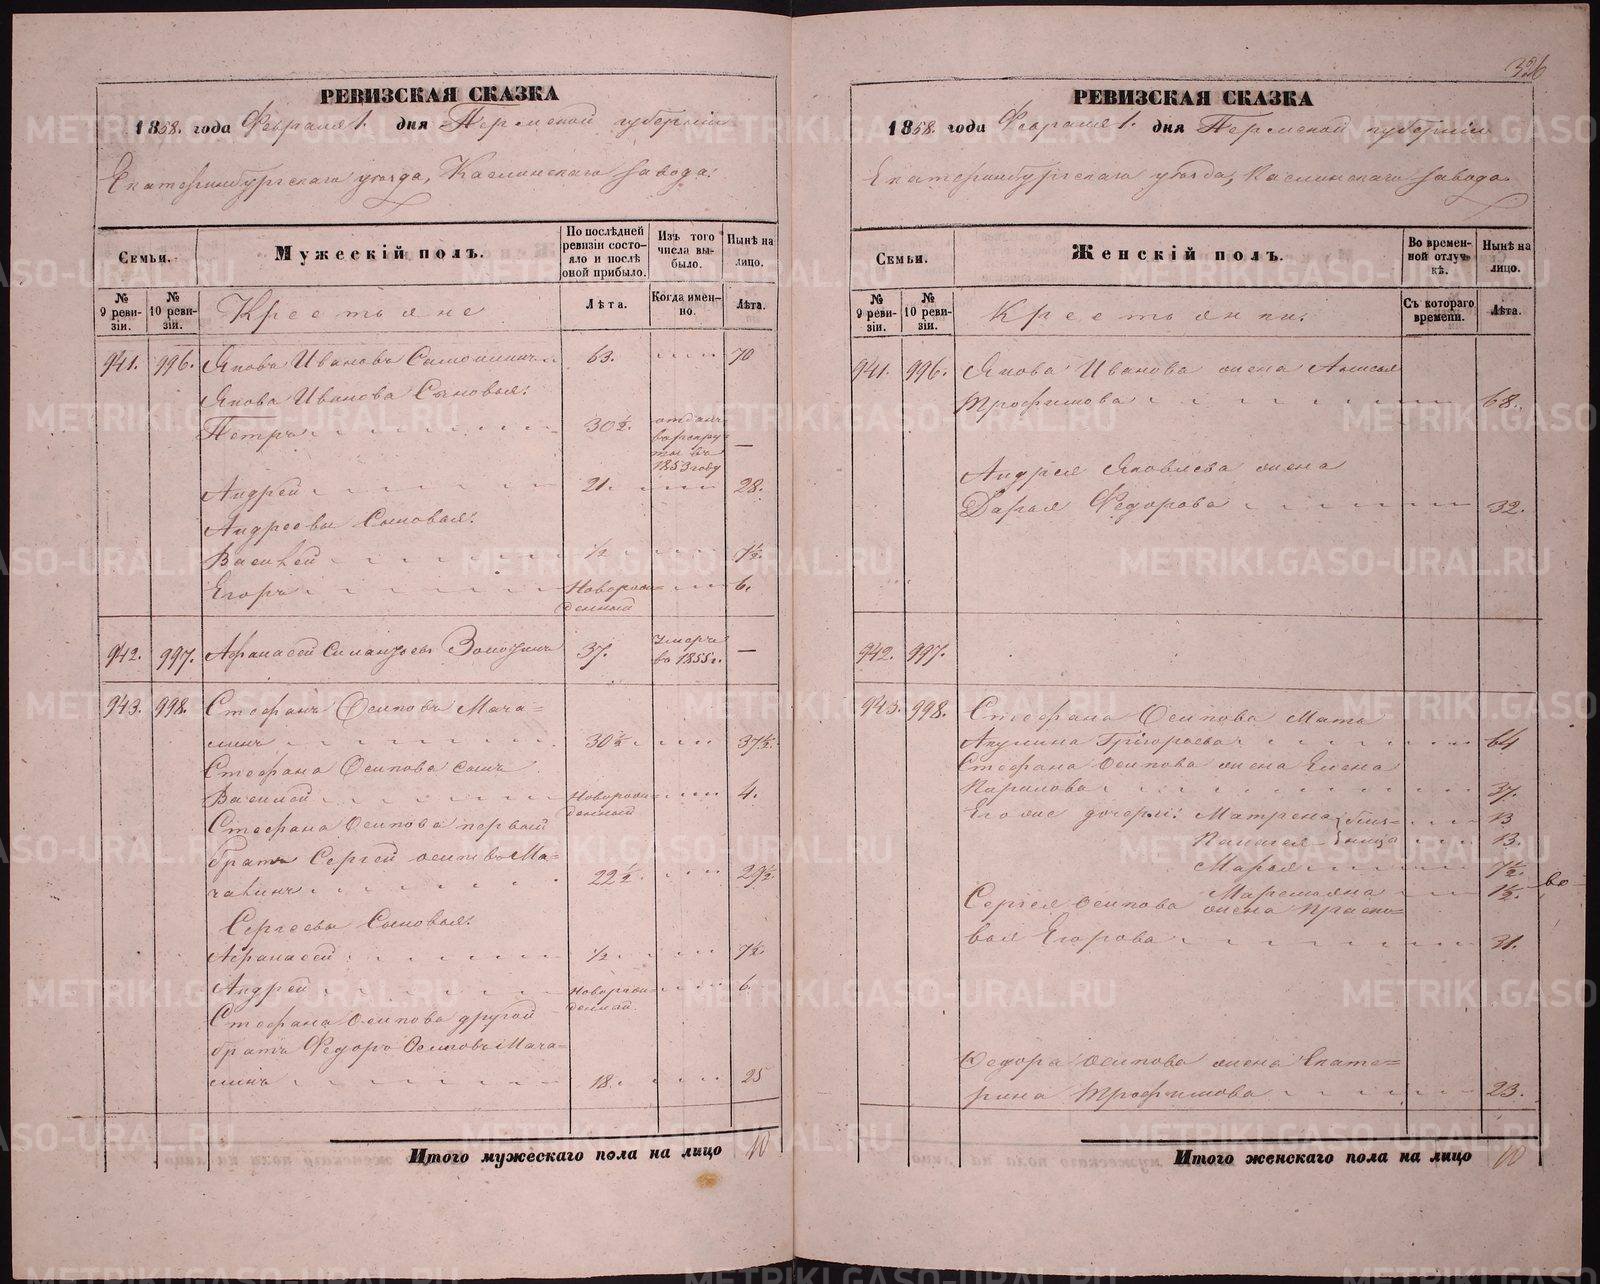 РЕВИЗСКАЯ СКАЗКА
1858. года Февраля 1. дня Пермской губернiи
Екатеринбургскаго уѣзда, Каслинскаго завода.
Семьи.
Мужескій полъ.
По послѣдней ревизіи состояло и послѣ оной прибыло.
Изъ того числа выбыло.
Нынѣ на лицо.
№ 9 ревизіи.
№ 10 ревизіи.
Крестьяне
Лѣта.
Когда именно.
Лѣта.
941. 996. Яковъ Ивановъ 63. 70
Якова Иванова Сыновья:
Петръ 30½. отданъ въ рекруты въ 1853 году —
Андрей 21. 28.
Андреевы Сыновья:
Василей ½ 7½.
Егоръ Новорожденный 6.
942. 997. Афанасей 37. Умеръ въ 1855 г. —
943. 998. Стефанъ Осиповъ Мача=
линъ 30½. 37½.
Стефана Осипова сынъ
Василей Новорожденный 4.
Стефана Осипова первый
братъ Сергей Осиповъ Ма=
чалинъ 22½. 29½.
Сергеевы Сыновья:
Афанасей ½. 7½.
Андрей Новорожденный 6.
Стефана Осипова другой
братъ Федоръ Осиповъ Мача=
линъ 18. 25
Итого мужескаго пола на лицо 10
РЕВИЗСКАЯ СКАЗКА
1858. года Февраля 1. дня Пермской губернiи
Екатеринбургскаго уѣзда, Каслинскаго завода.
Семьи.
Женскій полъ.
Во временной отлучкѣ.
Нынѣ на лицо.
№ 9 ревизіи.
№ 10 ревизіи.
Крестьянки.
Съ котораго времени.
Лѣта.
941. 996. Якова Иванова жена Анисья
Трофимова 68.
Андрея Яковлева жена
Дарья Федорова 32.
942. 997.
943. 998. Стефана Осипова Мать
Акулина Григорьева 64
Стефана Осипова жена Елена
Карпилова 37.
Его же дочери: Матрена близ= 13
Палагея ницы 13.
Марья 7½.
Маремьяна 1½.
Сергея Осипова жена Праско=
вья Егорова 31.
Федора Осипова жена Екате=
рина Трофимова 23.
Итого женскаго пола на лицо 10
METRIKI.GASO-URAL.RU